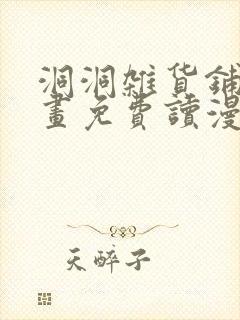 洞洞雜貨鋪
畫免費讀漫
天醉子